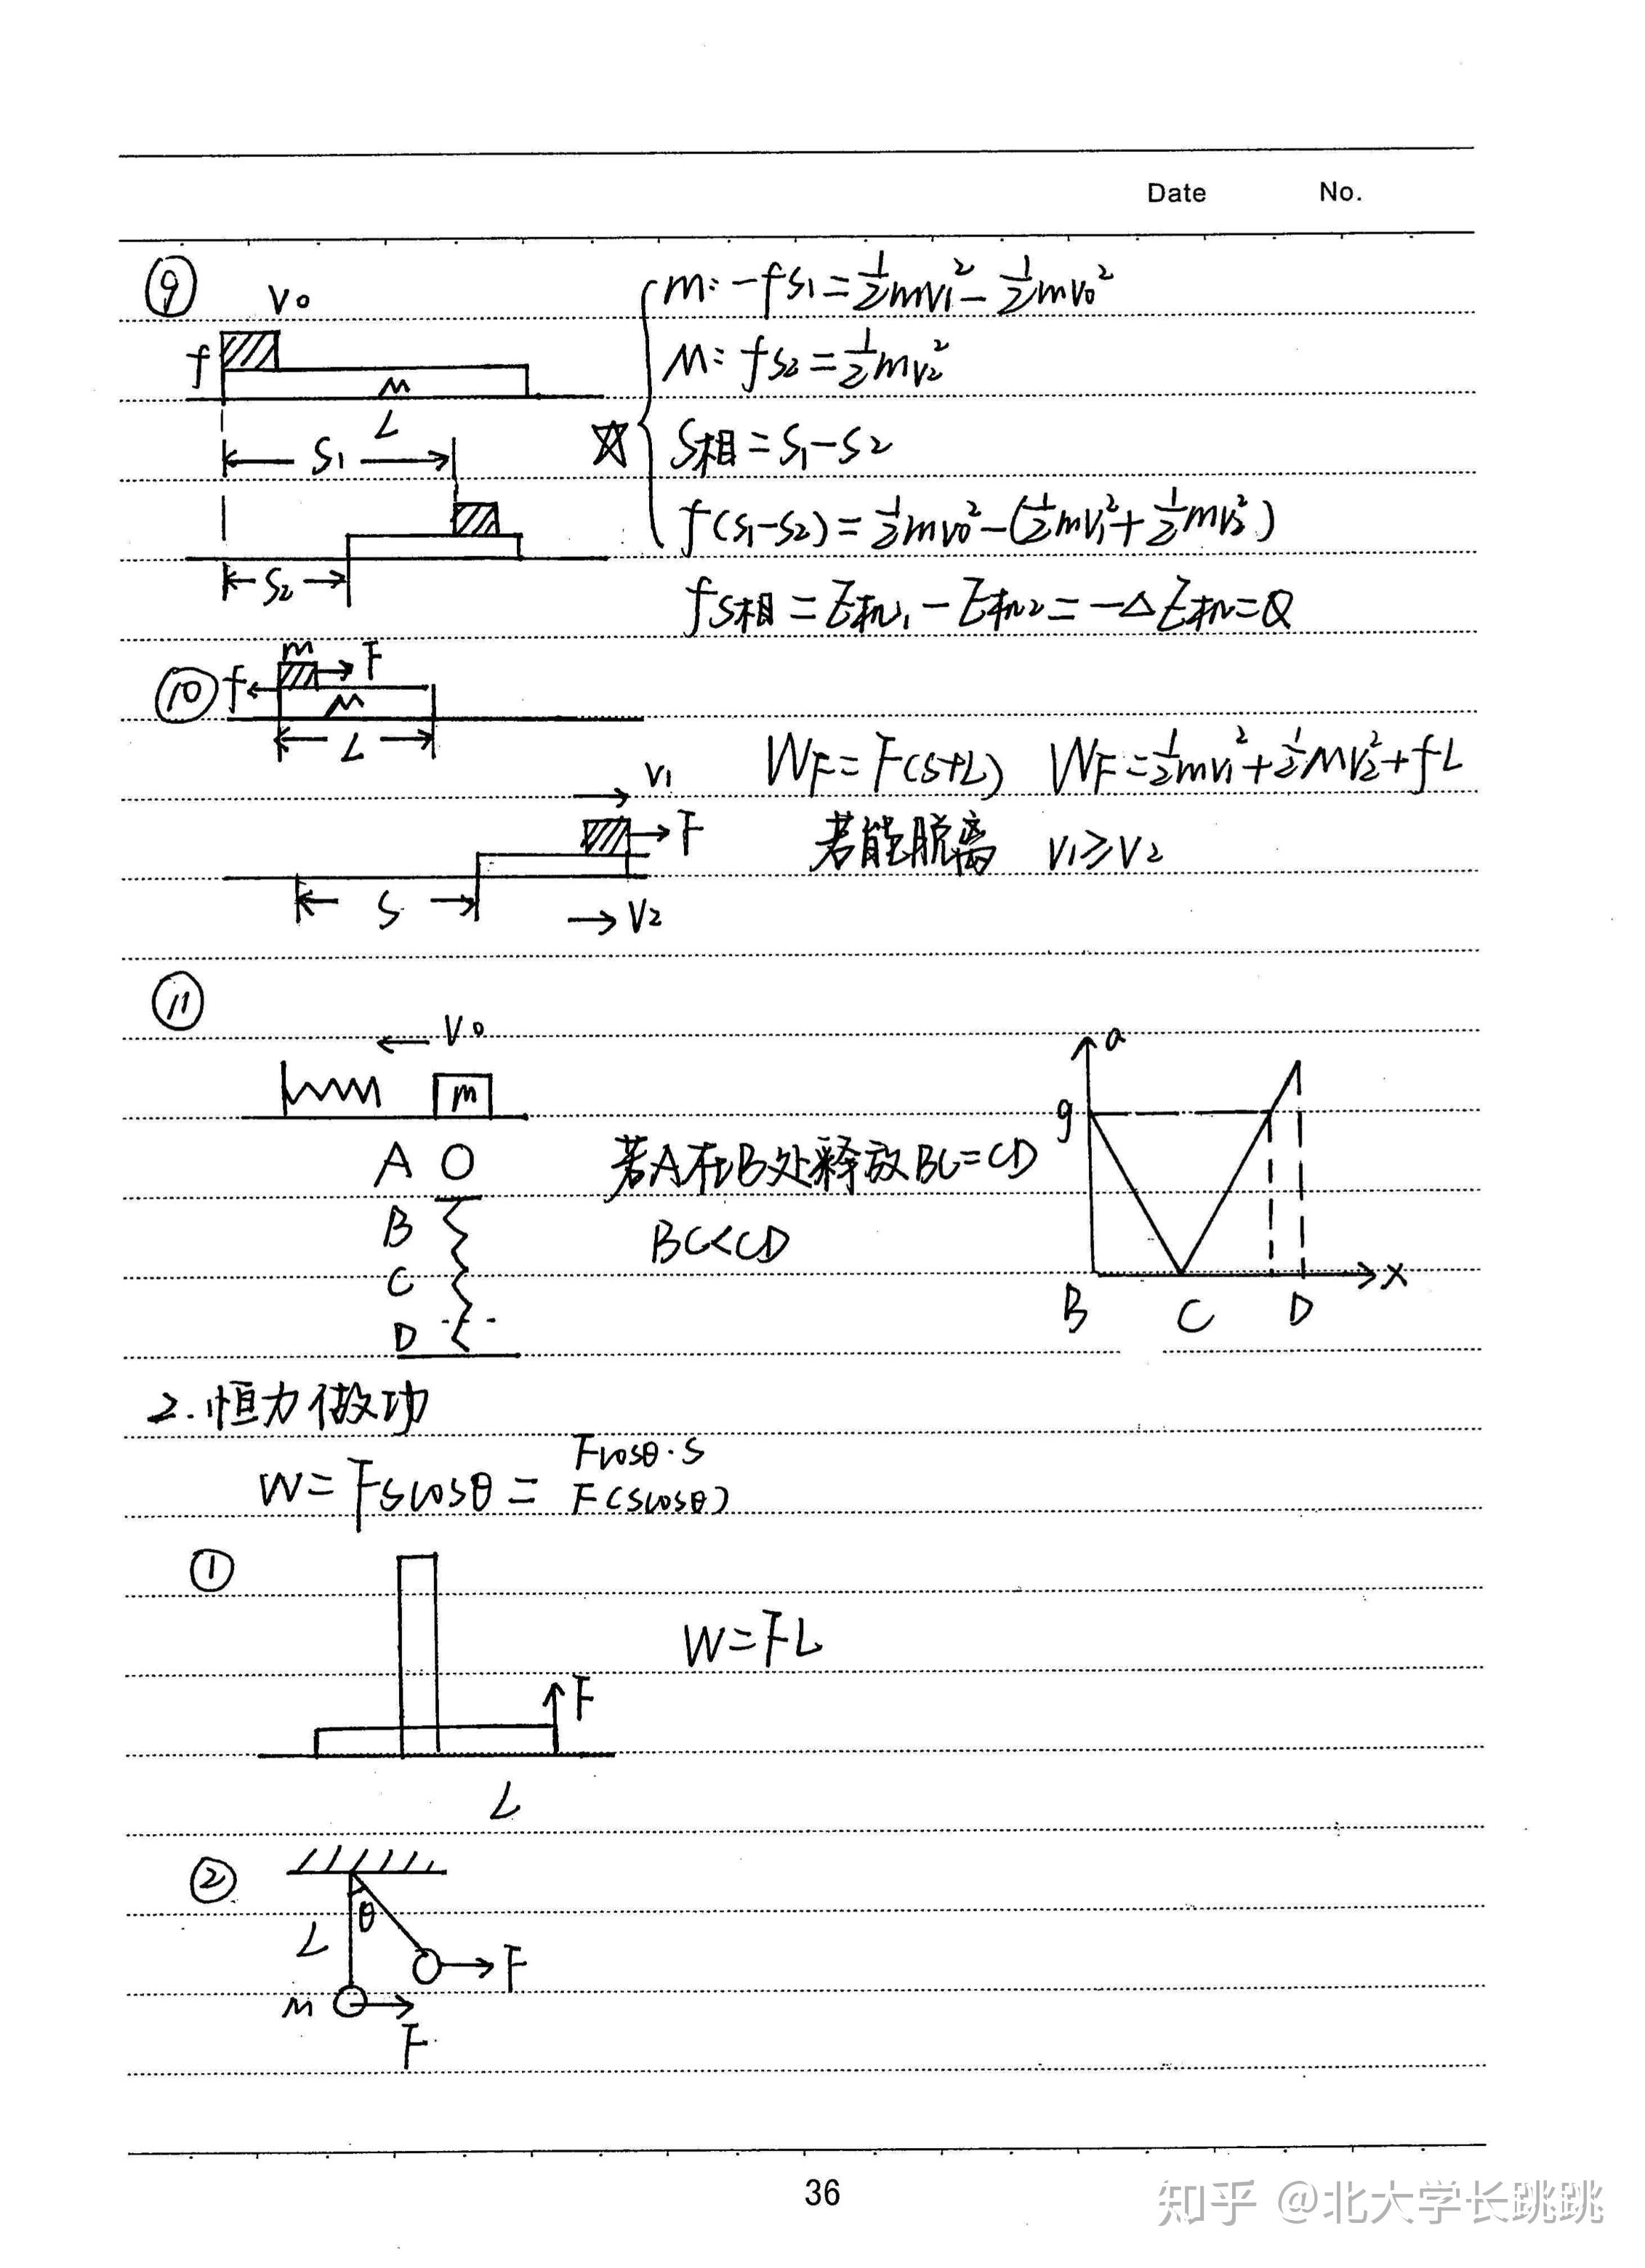 Date No.
⑨
V₀
f
M
L
S₁
S₂
m: -fS₁=½mv₁²-½mv₀²
M: fS₂=½mv₂²
☆ S相=S₁-S₂
f(S₁-S₂)=½mv₀²-(½mv₁²+½mv₂²)
fS相=E机₁-E机₂=-ΔE机=Q
⑩
f m F
M
L
V₁
F
S
V₂
W_F=F(S+L) W_F=½mv₁²+½Mv₂²+fL
若能脱离 V₁≥V₂
⑪
V₀
m
A
B
C
D
若A在B处释放BC=CD
BC<CD
a
g
x
B C D
2.恒力做功
W=FScosθ= Fcosθ·S
F(Scosθ)
①
F
W=FL
L
②
θ
L
F
m
F
36
知乎 @北大学长跳跳